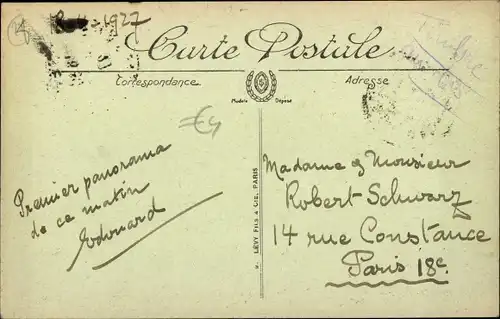 1927
Carte Postale
Correspondance
Adresse
Modèle Déposé
€4
Premier panorama
de ce matin
Edouard
LÉVY FILS & CIE, PARIS
Madame & Monsieur
Robert Schwarz
14 rue Constance
Paris 18e.